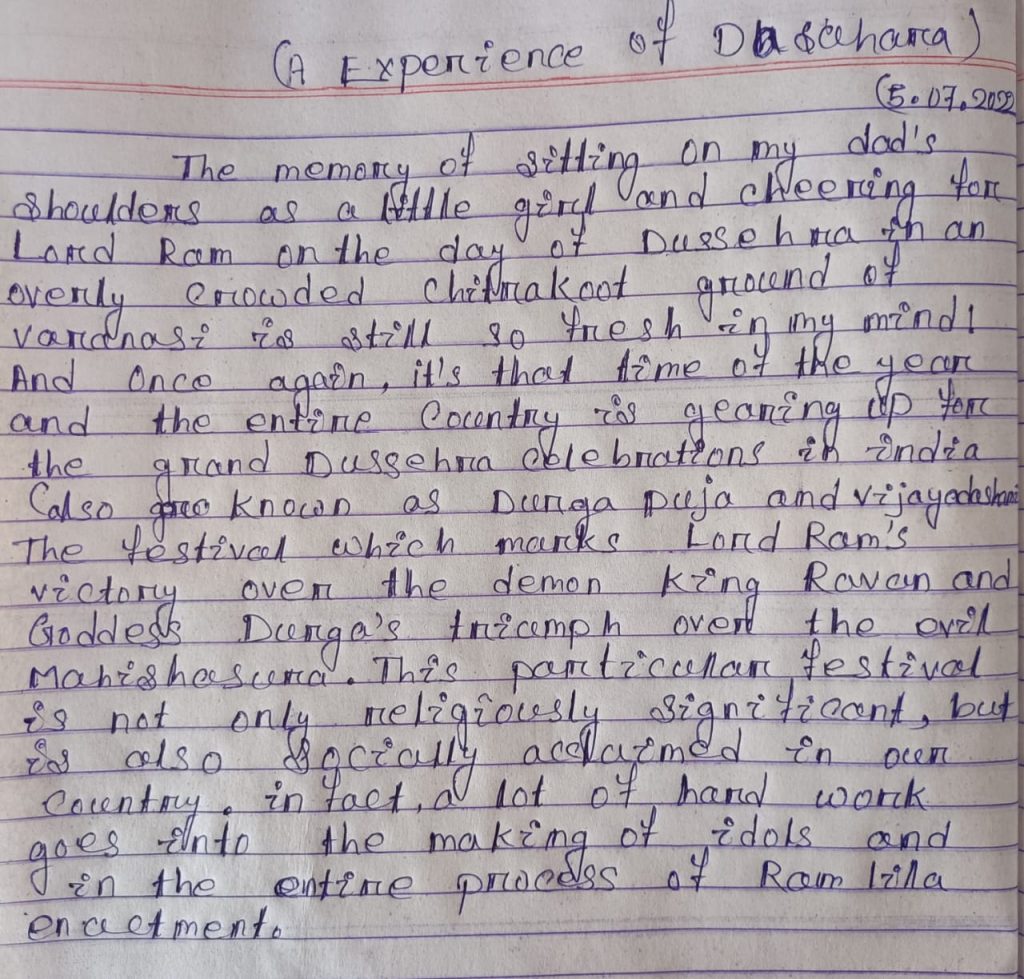 (A Experience of Daschara)
(5.07.2022
The memory of sitting on my dad's
Shoulders as a little girl and cheering for
Lord Ram on the day of Dussehra in an
overly crowded chitrakoot ground of
varanasi is still so fresh in my mind!
And Once again, it's that time of the year
and the entire Country is gearing up for
the grand Dussehra celebrations in india
(also known as Durga puja and vijayadashami
The festival which marks Lord Ram's
victory over the demon King Ravan and
Goddess Durga's triumph over the evil
Mahishasura. This particular festival
is not only religiously significant, but
is also socially acclaimed in our
Country. in fact, a lot of hard work
goes into the making of idols and
in the entire process of Ram lila
enactment.